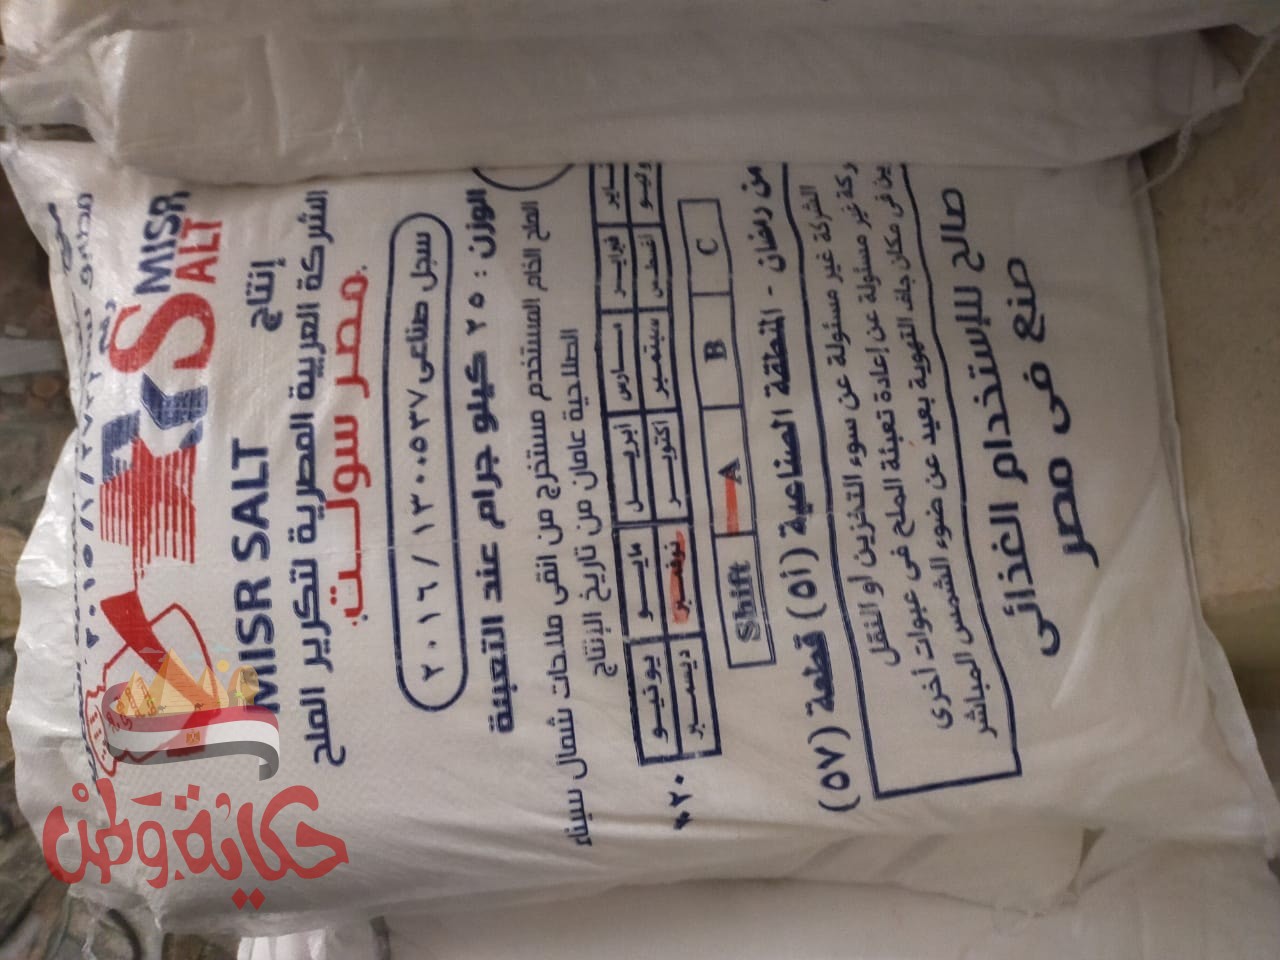 MISR
SALT
MISR SALT إنتاج
الشركة العربية المصرية لتكرير الملح
مصر سولت
سجل صناعى ٢٠١٦/١٣٠٠٥٣٧
الوزن : ٢٥ كيلو جرام عند التعبئة
الملح الخام المستخدم مستخرج من انقى ملاحات شمال سيناء
الصلاحية عامان من تاريخ الإنتاج
فبرايـر مــارس أبريــل مايــو يونيـو
أغسطس سبتمبر أكتوبـر نوفمبر ديسمبر
٢٠
Shift A B C
المنطقة الصناعية (٥أ) قطعة (٥٧)
الشركة غير مسئولة عن سوء التخزين او النقل
غير مسئولة عن إعادة تعبئة الملح فى عبوات أخرى
فى مكان جاف التهوية بعيد عن ضوء الشمس المباشر
صالح للإستخدام الغذائى
صنع فى مصر
حكاية وطن